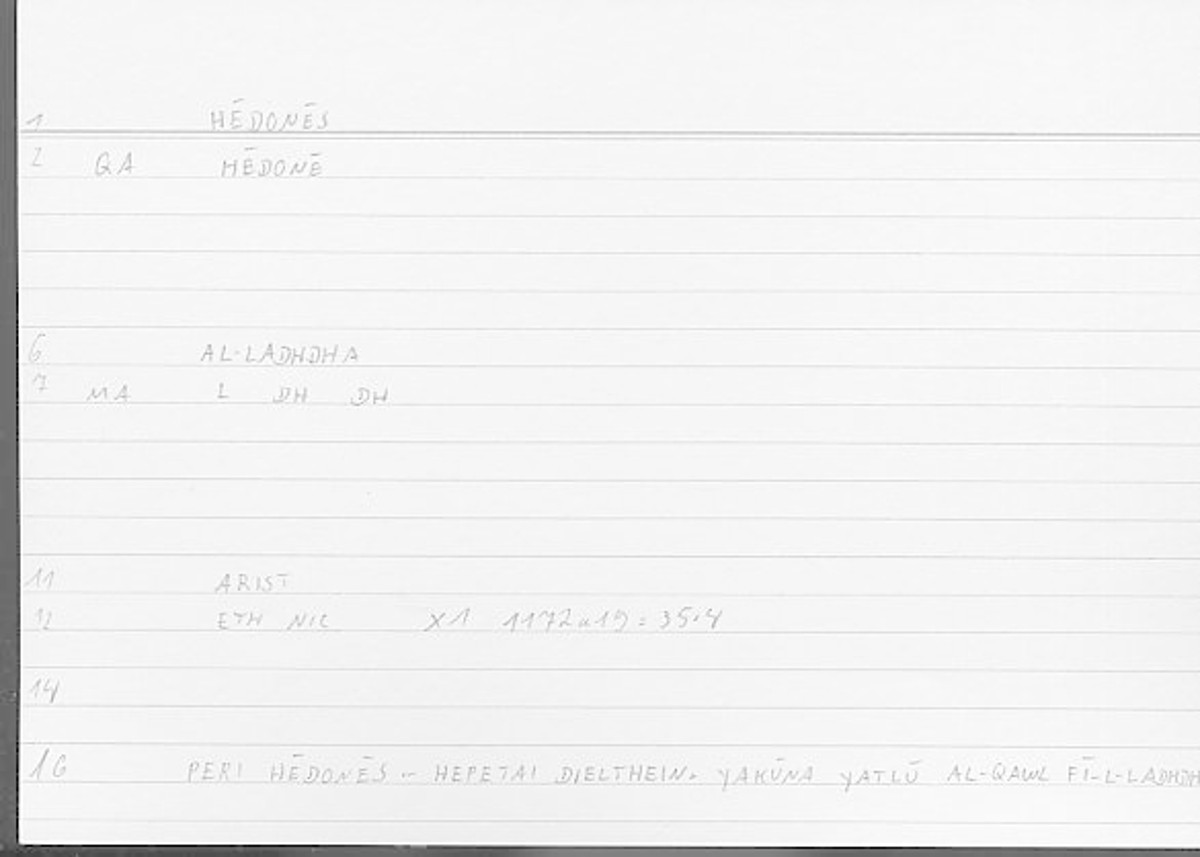 1 HĒDONĒS
2 QA HĒDONĒ
6 AL-LADHDHA
7 MA L DH DH
11 ARIST
12 ETH NIC X1 1172a19 = 35.4
14
16 PERI HĒDONĒS .. HEPETAI DIELTHEIN. YAKŪNA YATLŪ AL-QAWL FĪ-L-LADHDH